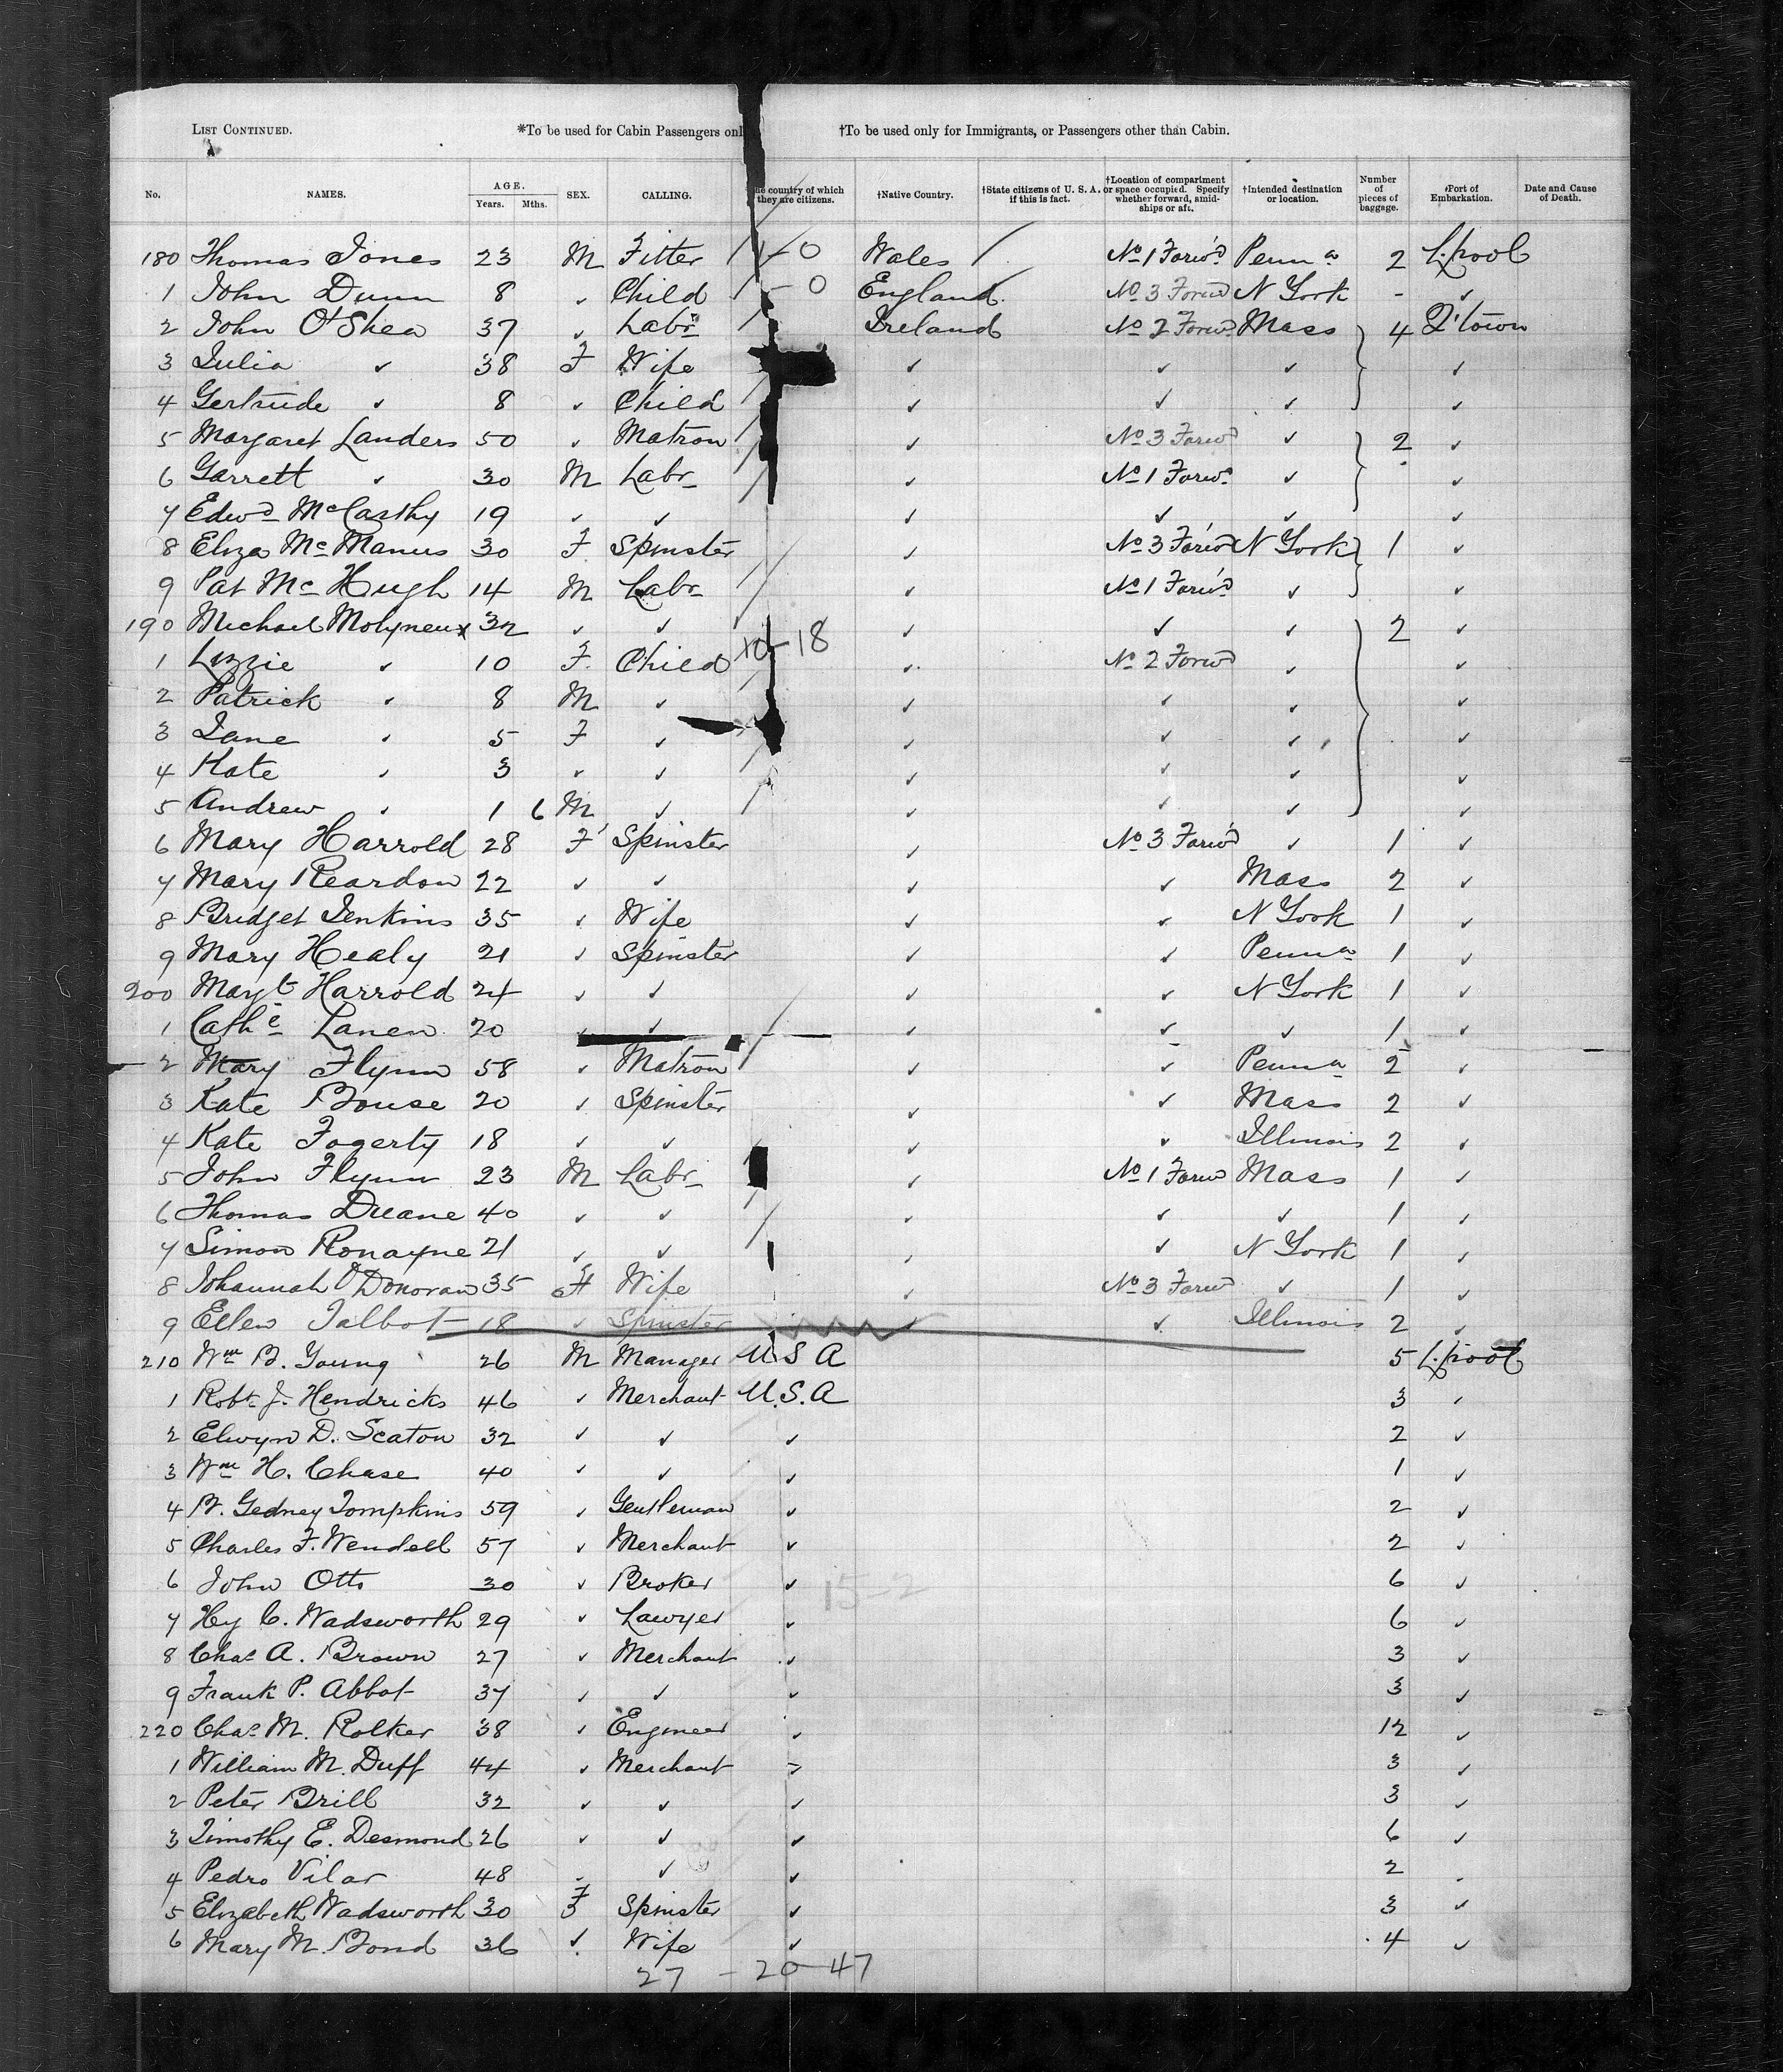 LIST CONTINUED. *To be used for Cabin Passengers onl †To be used only for Immigrants, or Passengers other than Cabin.
No. NAMES. AGE. Years. Mths. SEX. CALLING. he country of which they are citizens. †Native Country. †State citizens of U. S. A. if this is fact. †Location of compartment or space occupied. Specify whether forward, amidships or aft. †Intended destination or location. Number of pieces of baggage. Port of Embarkation. Date and Cause of Death.
180 Thomas Jones 23 M Fitter 0 Wales / No 1 Forwd Penna 2 L.pool
1 John Dunn 8 ✓ Child 0 England No 3 Forwd N York - ✓
2 John O'Shea 37 ✓ Labr Ireland No 2 Forwd Mass 4 Q'town
3 Julia ✓ 38 F Wife ✓ ✓ ✓ ✓
4 Gertrude ✓ 8 ✓ Child ✓ ✓ ✓ ✓
5 Margaret Landers 50 ✓ Matron ✓ No 3 Forwd ✓ 2 ✓
6 Garrett ✓ 30 M Labr ✓ No 1 Forwd ✓ ✓
7 Edwd McCarthy 19 ✓ ✓ ✓ ✓ ✓ ✓
8 Eliza McManus 30 F Spinster ✓ No 3 Forwd N York 1 ✓
9 Pat McHugh 14 M Labr ✓ No 1 Forwd ✓ ✓
190 Michael Molyneux 32 ✓ ✓ ✓ ✓ ✓ 2 ✓
10-18
1 Lizzie ✓ 10 F Child ✓ No 2 Forwd ✓ ✓
2 Patrick ✓ 8 M ✓ ✓ ✓ ✓ ✓
3 Jane ✓ 5 F ✓ ✓ ✓ ✓ ✓
4 Kate ✓ 3 ✓ ✓ ✓ ✓ ✓ ✓
5 Andrew ✓ 1 6 M ✓ ✓ ✓ ✓ ✓
6 Mary Harrold 28 F Spinster ✓ No 3 Forwd ✓ 1 ✓
7 Mary Reardon 22 ✓ ✓ ✓ ✓ Mass 2 ✓
8 Bridget Jenkins 35 ✓ Wife ✓ ✓ N York 1 ✓
9 Mary Healy 21 ✓ Spinster ✓ ✓ Penna 1 ✓
200 Mayt Harrold 24 ✓ ✓ ✓ ✓ N York 1 ✓
1 Cathe Lanen 20 ✓ ✓ ✓ ✓ ✓ 1 ✓
2 Mary Flynn 58 ✓ Matron ✓ ✓ Penna 2 ✓
3 Kate Bouse 20 ✓ Spinster ✓ ✓ Mass 2 ✓
4 Kate Fogerty 18 ✓ ✓ ✓ ✓ Illinois 2 ✓
5 John Flynn 23 M Labr ✓ No 1 Forwd Mass 1 ✓
6 Thomas Duane 40 ✓ ✓ ✓ ✓ ✓ 1 ✓
7 Simon Ronayne 21 ✓ ✓ ✓ ✓ N York 1 ✓
8 Johannah O'Donovan 35 F Wife ✓ No 3 Forwd ✓ 1 ✓
9 Ellen Talbot 18 ✓ Spinster ✓ ✓ Illinois 2 ✓
210 Wm B. Young 26 M Manager U S A 5 L.pool
1 Robt J. Hendricks 46 ✓ Merchant U.S.A 3 ✓
2 Elwyn D. Seaton 32 ✓ ✓ ✓ 2 ✓
3 Wm H. Chase 40 ✓ ✓ ✓ 1 ✓
4 B. Gedney Tompkins 59 ✓ Gentleman ✓ 2 ✓
5 Charles F. Wendell 57 ✓ Merchant ✓ 2 ✓
6 John Otto 30 ✓ Broker ✓ 15-2 6 ✓
7 Hy C. Wadsworth 29 ✓ Lawyer ✓ 6 ✓
8 Chas A. Brown 27 ✓ Merchant ✓ 3 ✓
9 Frank P. Abbot 37 ✓ ✓ ✓ 3 ✓
220 Chas M. Rolker 38 ✓ Engineer ✓ 12 ✓
1 William M. Duff 44 ✓ Merchant ✓ 3 ✓
2 Peter Brill 32 ✓ ✓ ✓ 3 ✓
3 Timothy E. Desmond 26 ✓ ✓ ✓ 6 ✓
4 Pedro Vilar 48 ✓ ✓ ✓ 2 ✓
5 Elizabeth Wadsworth 30 F Spinster ✓ 3 ✓
6 Mary M. Bond 36 ✓ Wife ✓ 4 ✓
27 - 20 - 47